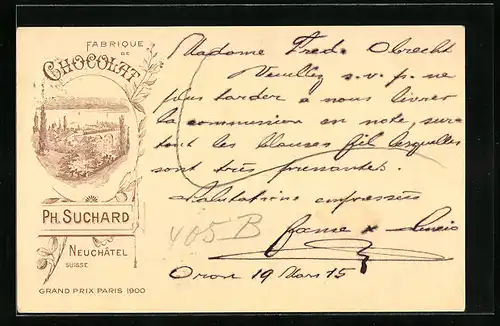 FABRIQUE
DE
CHOCOLAT
PH. SUCHARD
NEUCHÂTEL
SUISSE
GRAND PRIX PARIS 1900
Madame Fred. Obrecht
Veuillez s.v.p. ne
plus tarder a nous livrer
la commission en note, sur-
tout les blouses fil lesquelles
sont très
Salutations empressées
405 B
19 Mars 15